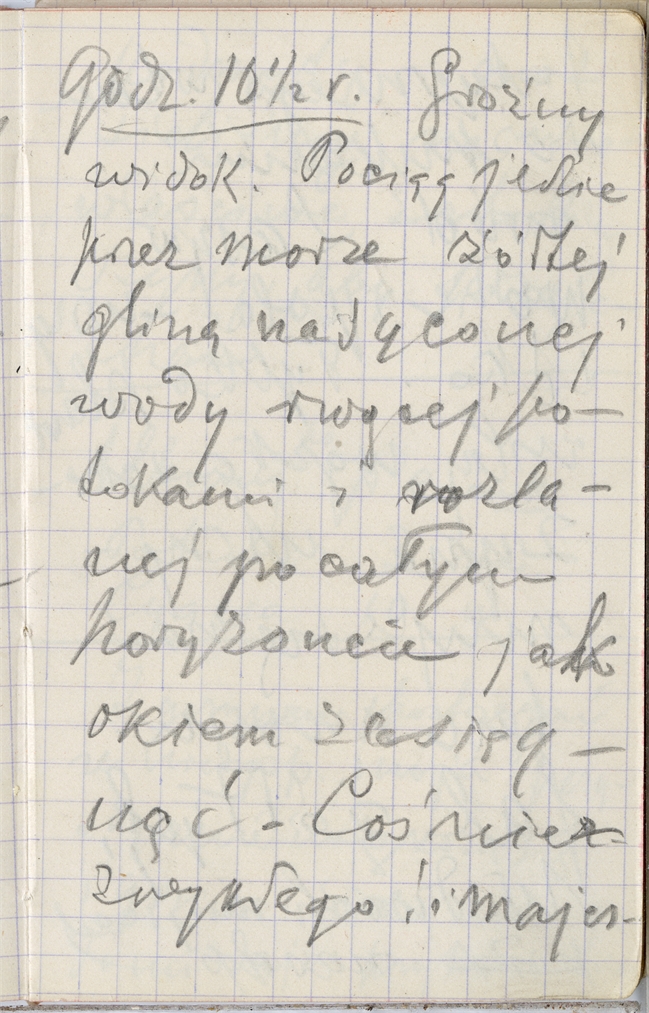 Godz. 10 1/2 r. Groźny
widok. Pociąg jedzie
przez morze żółtej
gliną nasyconej
wody rwącej po-
tokami i rozla-
nej po całym
horyzoncie jak
okiem zasięg-
nąć - Coś nie-
zwykłego i majes-